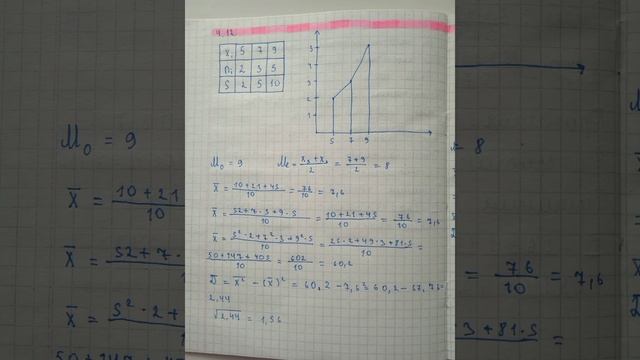 4.12
Xi 5 7 9
ni 2 3 5
S 2 5 10
5
4
3
2
1
5 7 9
M₀ = 9 Me = x₅ + x₆ / 2 = 7+9 / 2 = 8
X̄ = 10+21+45 / 10 = 76 / 10 = 7,6
X̄ = 52+7·3+9·5 / 10 = 10+21+45 / 10 = 76 / 10 = 7,6
X̄ = 5²·2+7²·3+9²·5 / 10 = 25·2+49·3+81·5 / 10 =
50+147+405 / 10 = 602 / 10 = 60,2
D̄ = X̄² - (X̄)² = 60,2 - 7,6² = 60,2 - 57,76 =
2,44
√2,44 = 1,56
M₀ = 9
X̄ = 10+21 / 10
X̄ = 52+7· / 10
X̄ = 5²·2+7² / 10
50+147
8
= 76 / 10 = 7,6
3+81·5 =